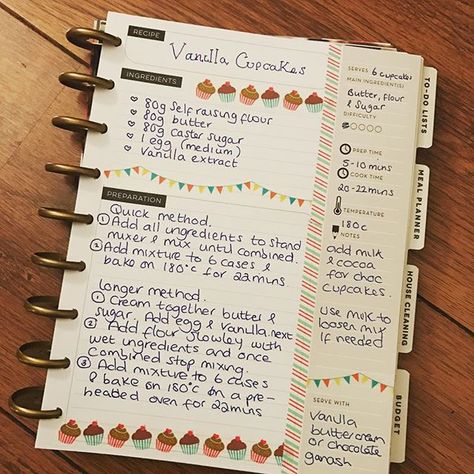 RECIPE
Vanilla Cupcakes
INGREDIENTS
80g Self raising flour
80g butter
80g caster sugar
1 egg (medium)
Vanilla extract
PREPARATION
Quick method.
① Add all ingredients to stand
mixer & mix until combined.
② Add mixture to 6 cases &
bake on 180°C for 22mins
longer method.
① Cream together butter &
sugar. Add egg & vanilla next
② Add flour slowley with
wet ingredients and once
combined stop mixing.
③ Add mixture to 6 cases
& bake on 180°C on a pre-
heated oven for 22mins
SERVES 6 cupcakes
MAIN INGREDIENT(S)
Butter, flour
& Sugar
DIFFICULTY
PREP TIME
5-10 mins
COOK TIME
20-22mins
TEMPERATURE
180c
NOTES
add milk
& cocoa
for choc
cupcakes.
Use milk to
loosen mix
if needed
SERVE WITH
Vanilla
buttercream
or chocolate
ganash
TO-DO LISTS
MEAL PLANNER
HOUSE CLEANING
BUDGET